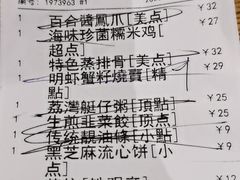 编号: 1973963 #1
1 百合醬鳳爪[美点] ¥32
1 海味珍菌糯米鸡[超点] ¥29
1 特色蒸排骨[美点] ¥32
1 明虾蟹籽燒賣[精點]
1 荔灣艇仔粥[頂點] ¥29
1 生煎韭菜餃[顶点] ¥25
1 传统靚油條[小點] ¥25
1 黑芝麻流心饼[小点]